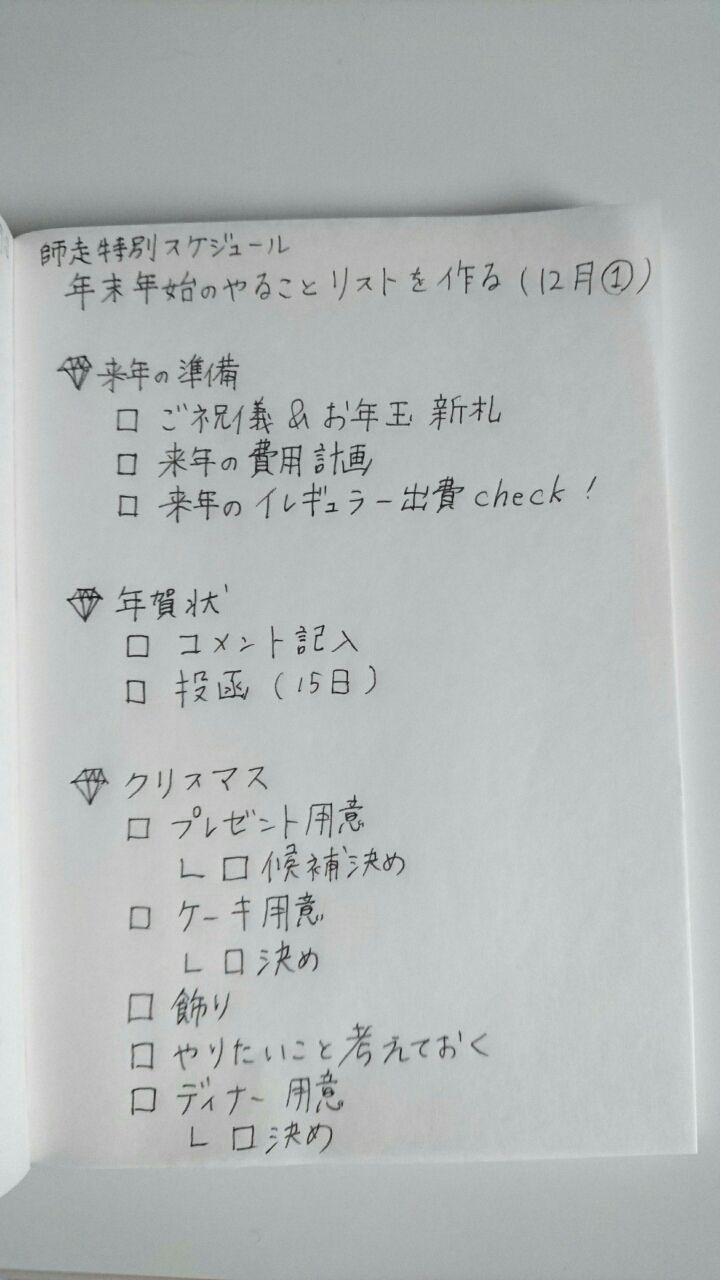 師走特別スケジュール
年末年始のやることリストを作る(12月①)
来年の準備
□ ご祝儀&お年玉 新札
□ 来年の費用計画
□ 来年のイレギュラー出費check!
年賀状
□ コメント記入
□ 投函(15日)
クリスマス
□ プレゼント用意
└ □ 候補決め
□ ケーキ用意
└ □ 決め
□ 飾り
□ やりたいこと考えておく
□ ディナー用意
└ □ 決め